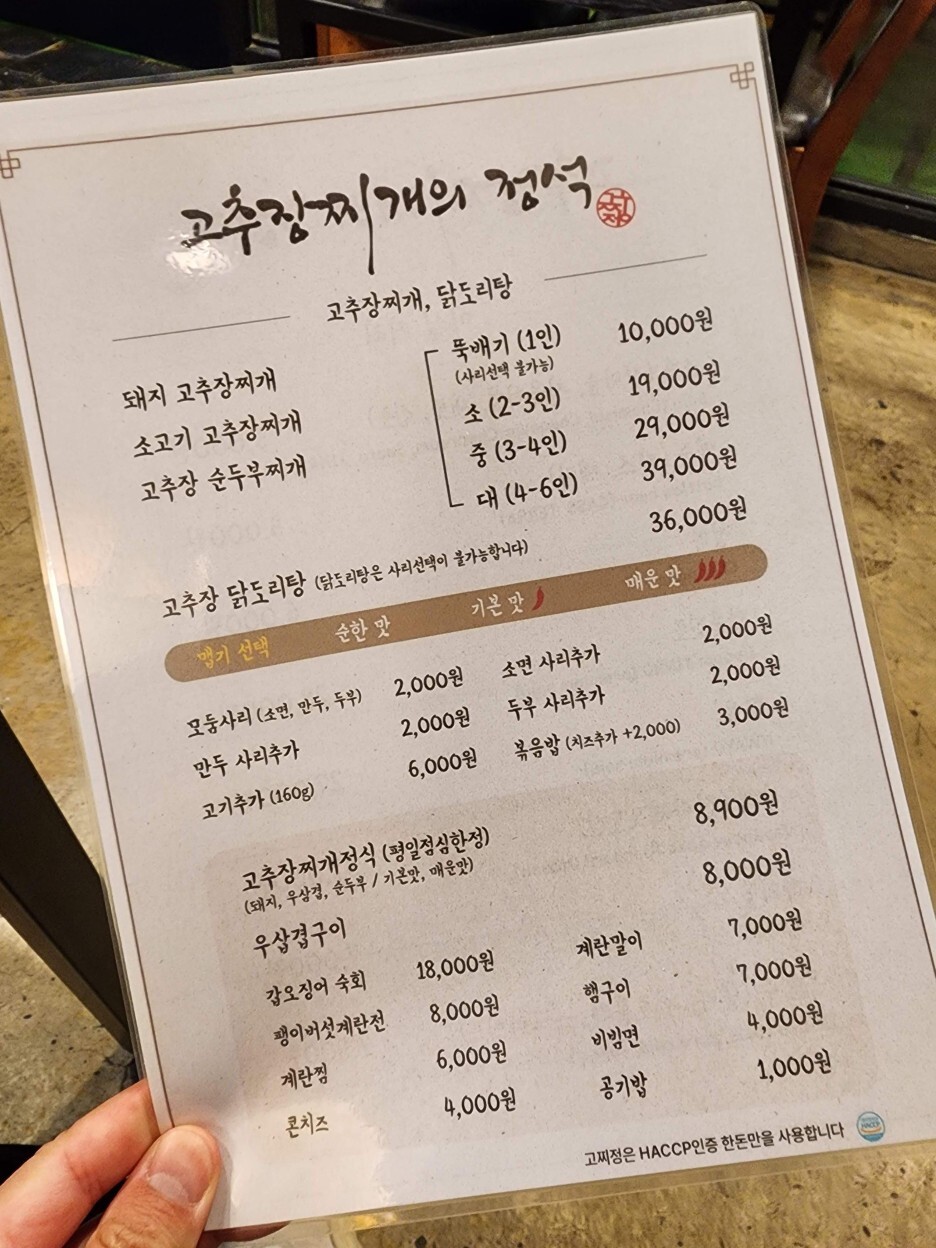 고추장찌개의 정석
고추장찌개, 닭도리탕
돼지 고추장찌개
소고기 고추장찌개
고추장 순두부찌개
뚝배기 (1인) 10,000원
(사리선택 불가능)
소 (2-3인) 19,000원
중 (3-4인) 29,000원
대 (4-6인) 39,000원
고추장 닭도리탕 (닭도리탕은 사리선택이 불가능합니다) 36,000원
맵기 선택 순한 맛 기본 맛 매운 맛
모둠사리 (소면, 만두, 두부) 2,000원 소면 사리추가 2,000원
만두 사리추가 2,000원 두부 사리추가 2,000원
고기추가 (160g) 6,000원 볶음밥 (치즈추가 +2,000) 3,000원
고추장찌개정식 (평일점심한정) 8,900원
(돼지, 우삼겹, 순두부 / 기본맛, 매운맛)
우삼겹구이 8,000원
갑오징어 숙회 18,000원 계란말이 7,000원
팽이버섯계란전 8,000원 햄구이 7,000원
계란찜 6,000원 비빔면 4,000원
콘치즈 4,000원 공기밥 1,000원
고찌정은 HACCP인증 한돈만을 사용합니다
HACCP